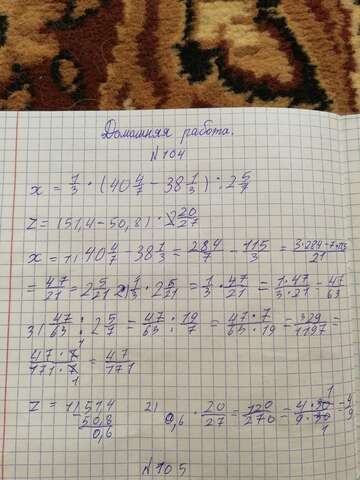 Домашняя работа.
N104
x = 1/3 · (40 4/7 - 38 1/3) : 2 5/7
Z = (51,4 - 50,8) · 20/27
x = 1) 40 4/7 - 38 1/3 = 284/7 - 115/3 = 3·284-7·115/21
= 47/21 = 2 5/21 2) 1/3 · 2 5/21 = 1/3 · 47/21 = 1·47/3·21 = 47/63
3) 47/63 : 2 5/7 = 47/63 : 19/7 = 47·7/63·19 = 329/1197 =
47·7/171·7 = 47/171
Z = 1) 51,4 2) 0,6 · 20/27 = 120/270 = 4·30/9·30 = 4/9
50,8
0,6
N105